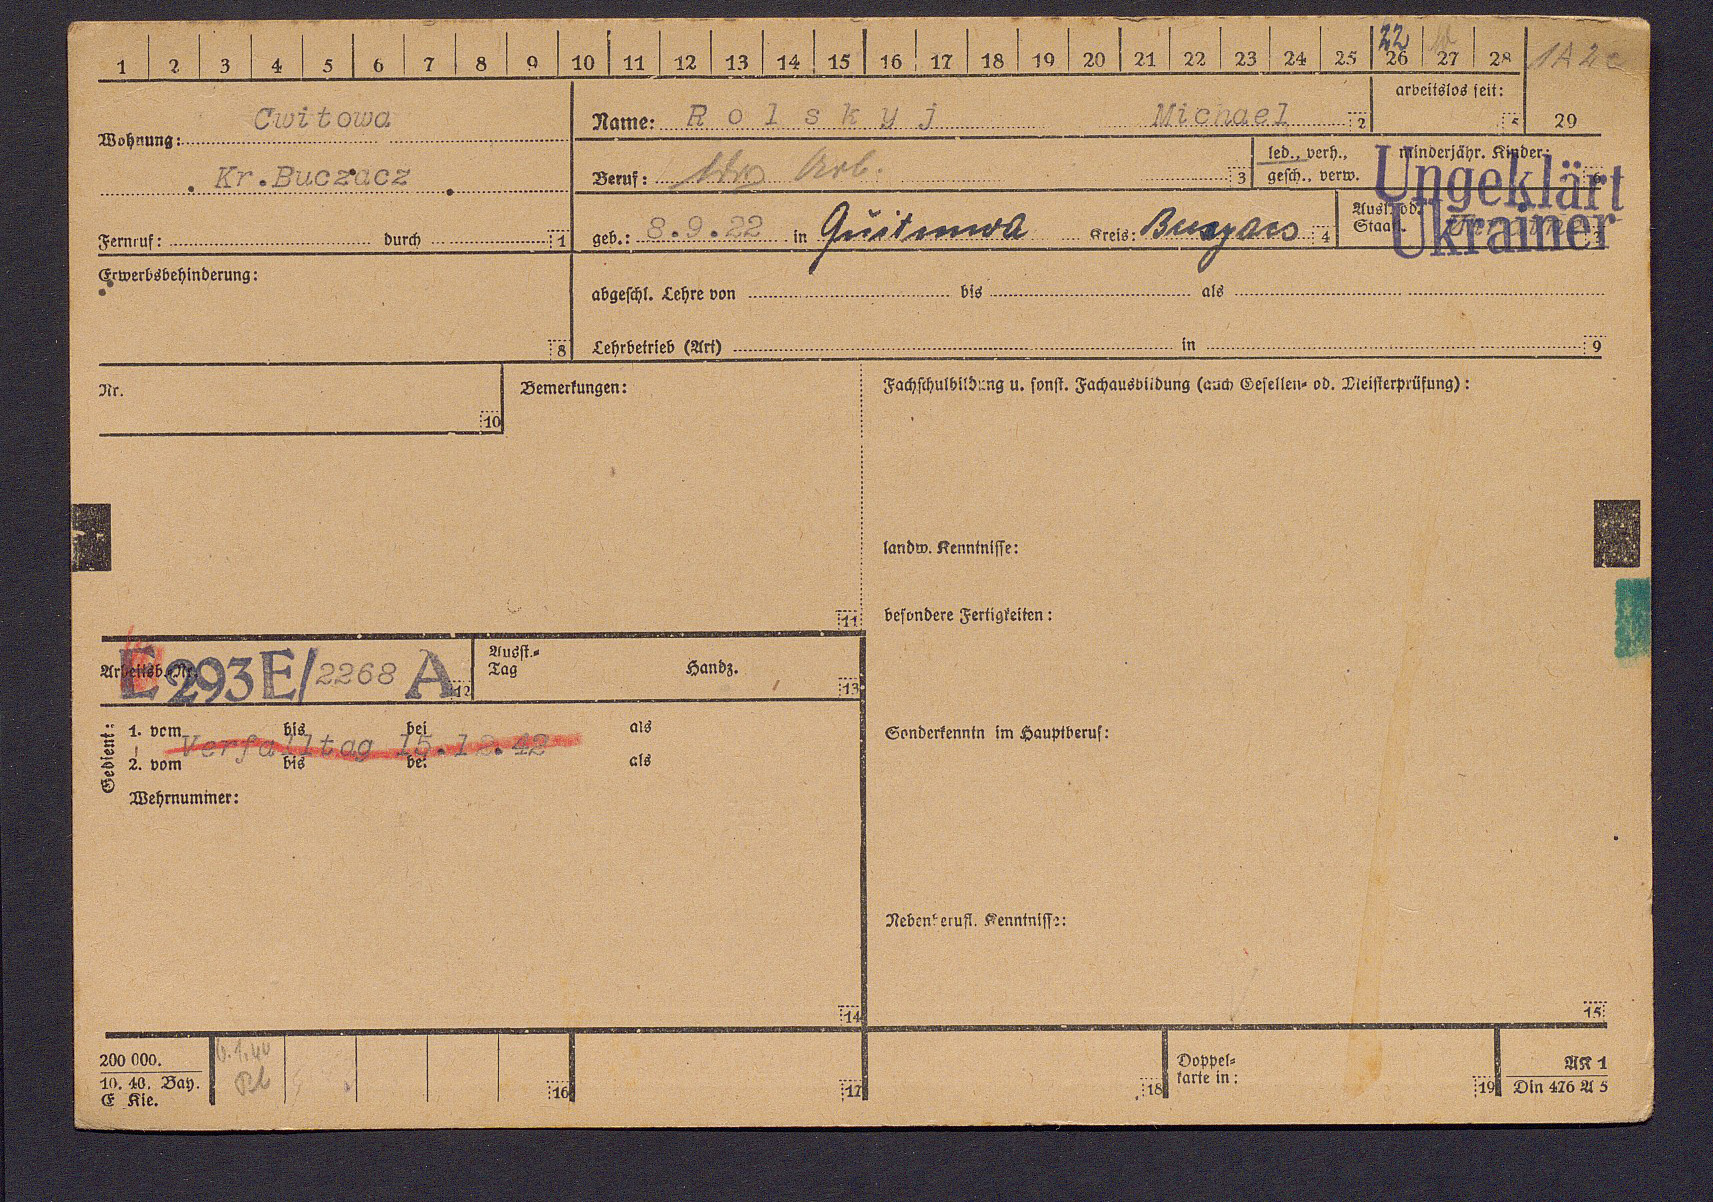 1 2 3 4 5 6 7 8 9 10 11 12 13 14 15 16 17 18 19 20 21 22 23 24 25 26 27 28
22
1A2c
Cwitowa
Wohnung:
Kr.Buczacz
Fernruf: durch 1
Name: Rolskyj Michael 2
arbeitslos seit:
5 29
Beruf: Arb. 3
led., verh.,
gesch., verw.
minderjähr. Kinder:
6
Ungeklärt
Ukrainer
geb.: 8.9.22 in Kreis: 4
Ausl. od.
Staatl.
Erwerbsbehinderung:
8
abgeschl. Lehre von bis als
Lehrbetrieb (Art) in 9
Nr.
10
Bemerkungen:
11
Fachschulbildung u. sonst. Fachausbildung (auch Gesellen- od. Meisterprüfung):
landw. Kenntnisse:
besondere Fertigkeiten:
Sonderkenntn im Hauptberuf:
Nebenberufl. Kenntnisse:
15
Arbeitsb.-Nr.
E 293E/2268 A
12
Ausst.-
Tag Handz.
13
Gedient:
1. vom bis bei als
Verfalltag 15.12.42
2. vom bis bei als
Wehrnummer:
14
200 000.
10. 40. Bay.
E Kie.
16
17
18
Doppel-
karte in:
19
AK 1
Din 476 A 5